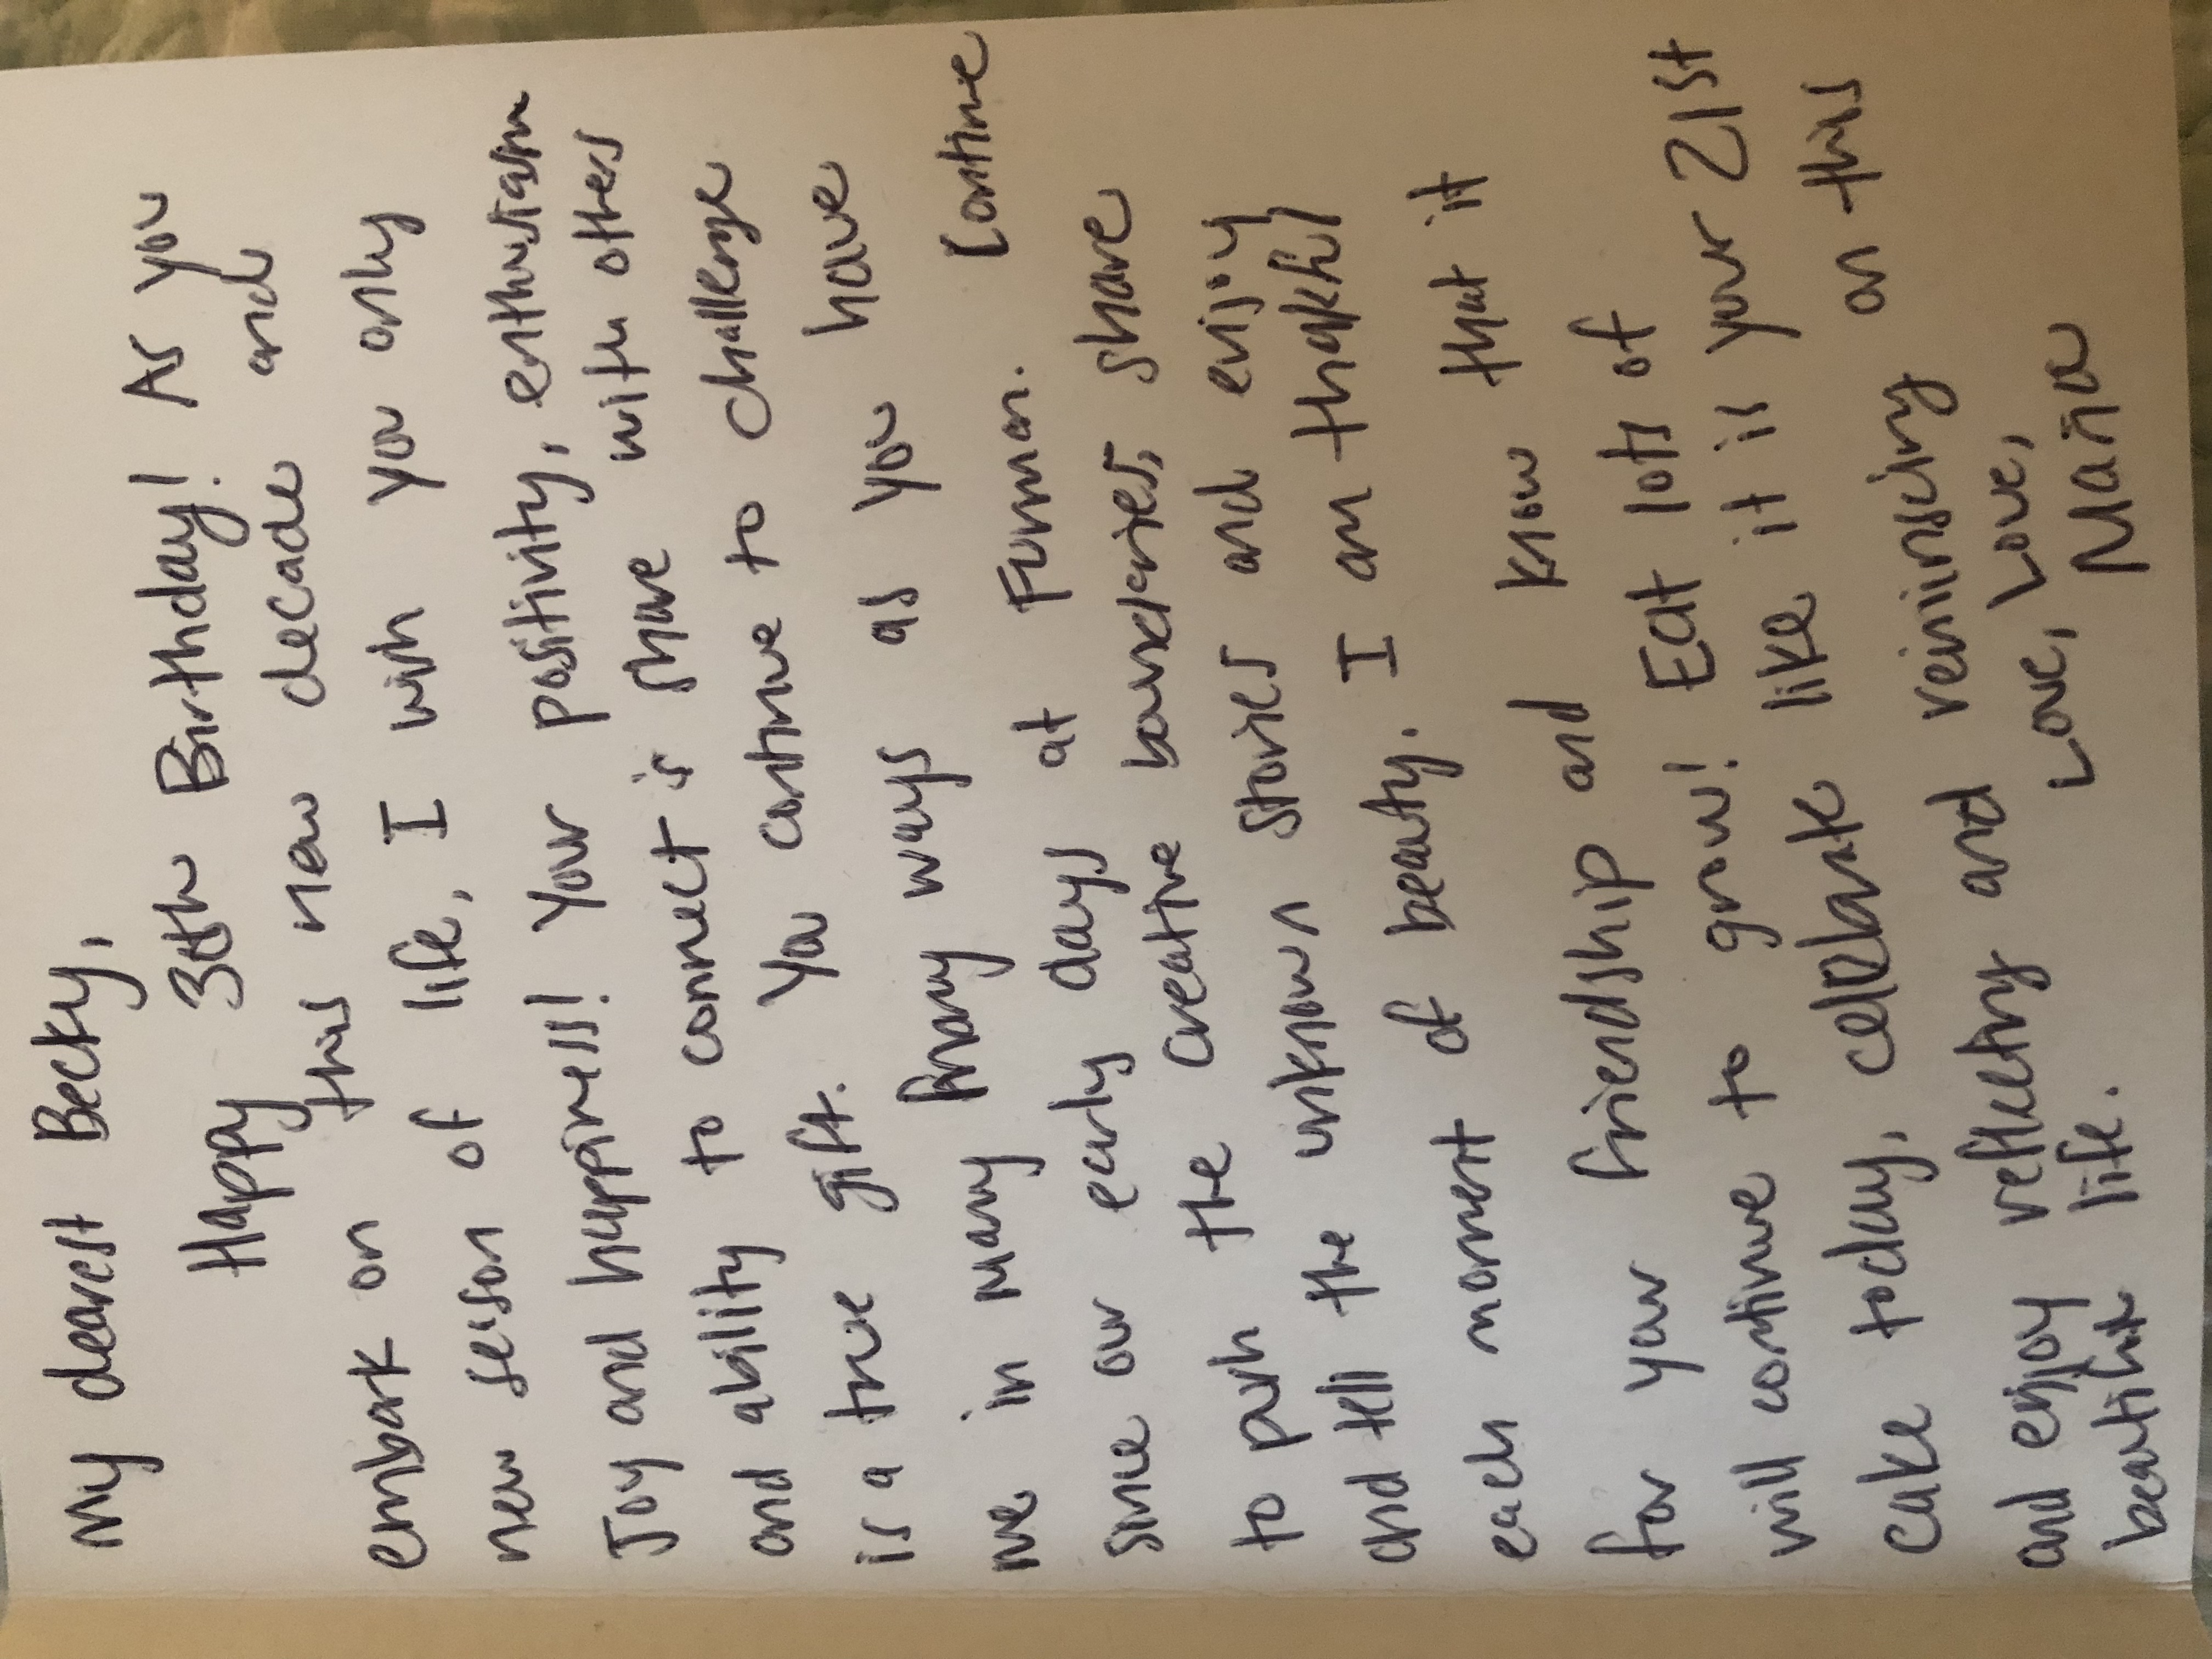 My dearest Becky,
Happy 30th Birthday! As you
embark on this new decade and
new season of life, I wish you only
Joy and happiness! Your positivity, enthusiasm
and ability to connect & share with others
is a true gift. You continue to challenge
me in many many ways as you have
since our early days at Furman. Continue
to push the creative boundaries, share
and tell the unknown stories and enjoy
each moment of beauty. I am thakful
for your friendship and know that it
will continue to grow! Eat lots of
cake today, celebrate like it is your 21st
and enjoy reflecting and reminscing on this
beautiful life.
Love, Love,
Maria